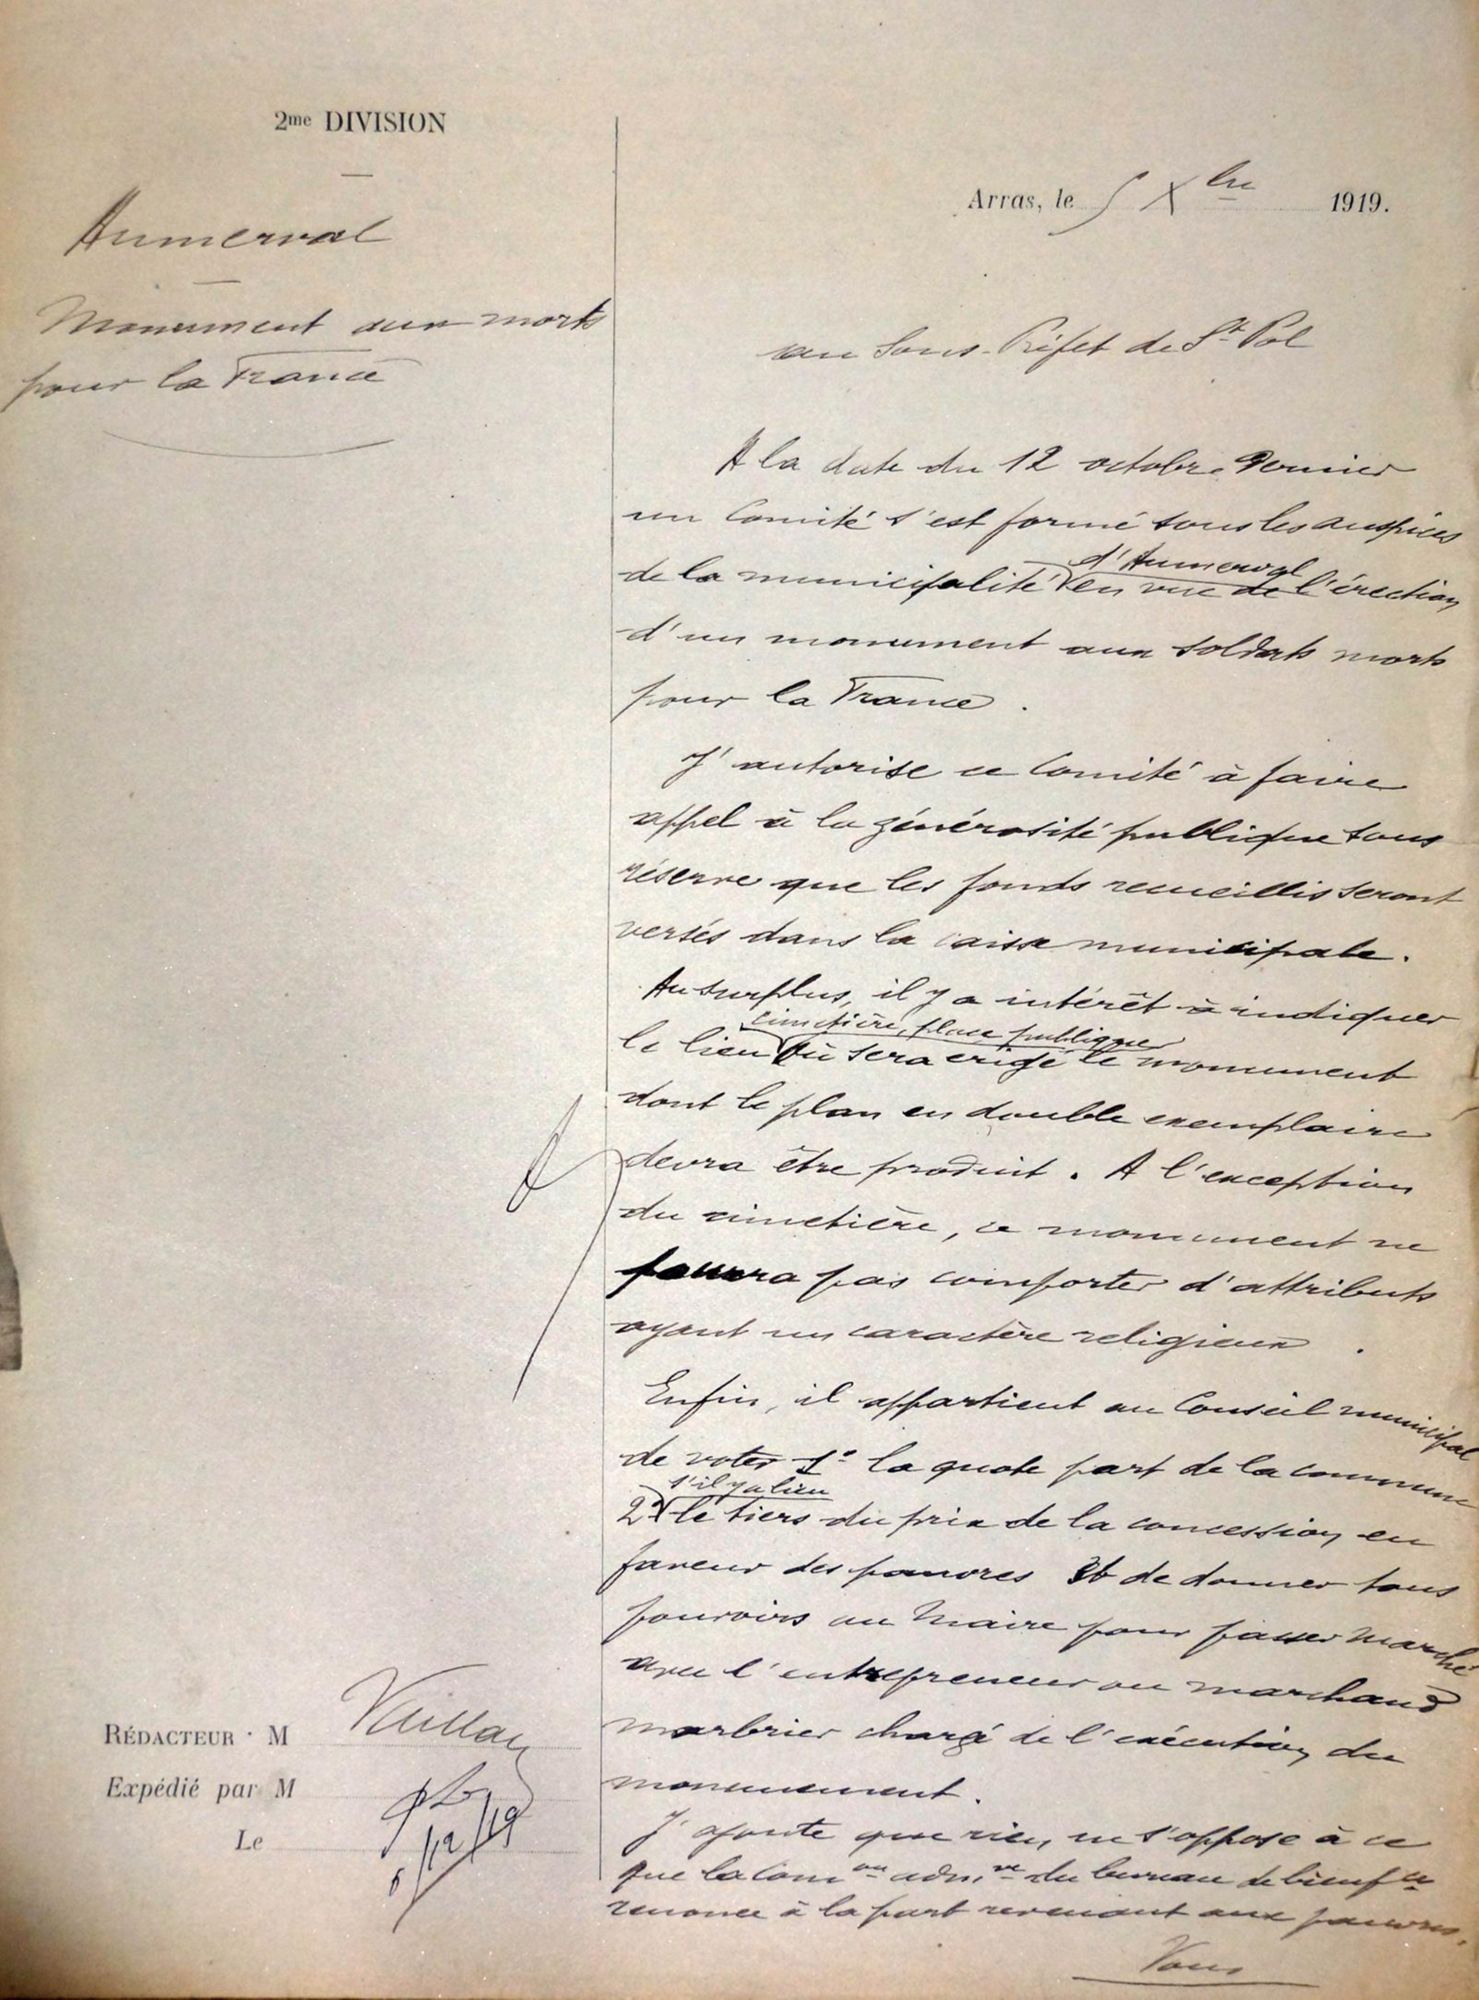 2me DIVISION
Aumerval
Monument aux morts
pour la France
Arras, le 5 Xbre 1919.
au Sous-Préfet de St Pol
A la date du 12 octobre dernier
un Comité s'est formé sous les auspices
d'Aumerval
de la municipalité en vue de l'érection
d'un monument aux soldats morts
pour la France.
J'autorise ce Comité à faire
appel à la générosité publique sous
réserve que les fonds recueillis seront
versés dans la caisse municipale.
Au surplus, il y a intérêt à indiquer
cimetière, place publique
le lieu où sera érigé le monument
dont le plan en double exemplaire
devra être produit. A l'exception
du cimetière, ce monument ne
pourra pas comporter d'attributs
ayant un caractère religieux.
Enfin, il appartient au Conseil municipal
de voter 1° la quote part de la commune
s'il y a lieu
2° le tiers du prix de la concession en
faveur des pauvres et de donner tous
pouvoirs au Maire pour passer marché
avec l'entrepreneur ou marchand
marbrier chargé de l'exécution du
monument.
J'ajoute que rien ne s'oppose à ce
que la Comon admve du bureau de bienfce
renonce à la part revenant aux pauvres.
Vous
RÉDACTEUR : M
Expédié par M
Le 6/12/19